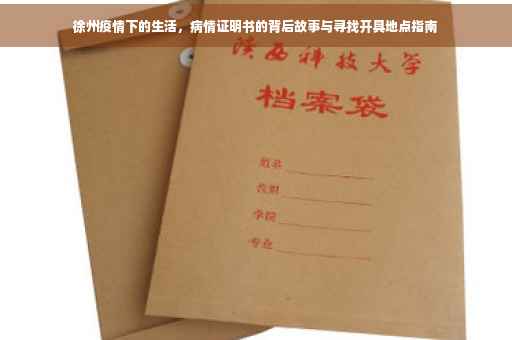 徐州疫情下的生活，病情证明书的背后故事与寻找开具地点指南
陕西科技大学
档案袋
学院
专业